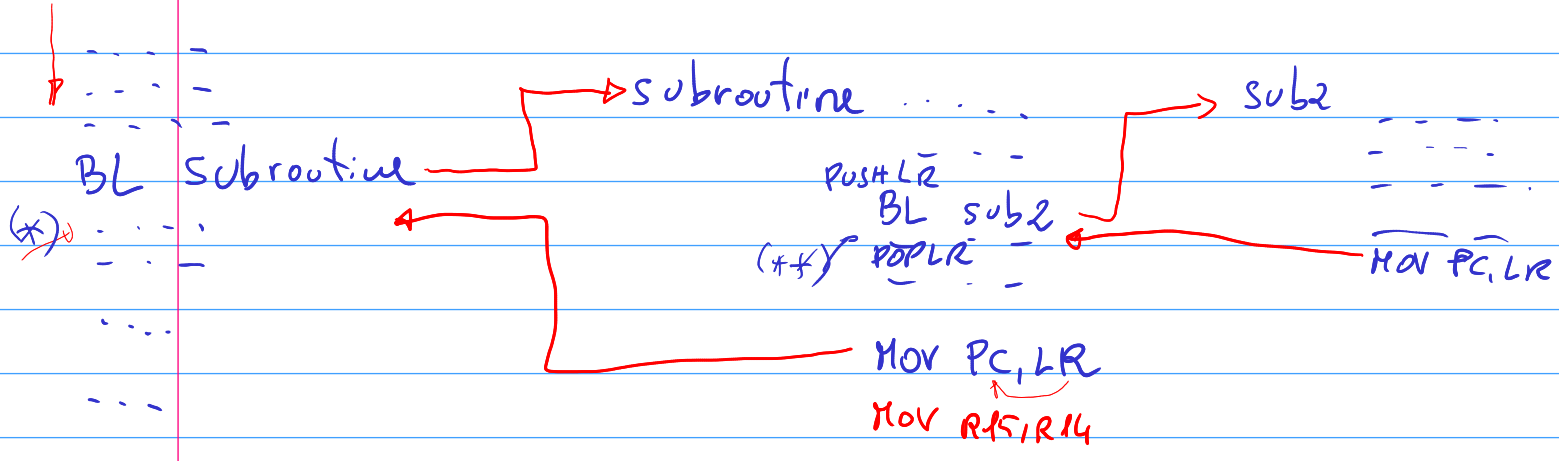 BL subroutine
(*)
subroutine
PUSH LR
BL sub2
(**) POP LR
MOV PC, LR
MOV R15, R14
sub2
MOV PC, LR